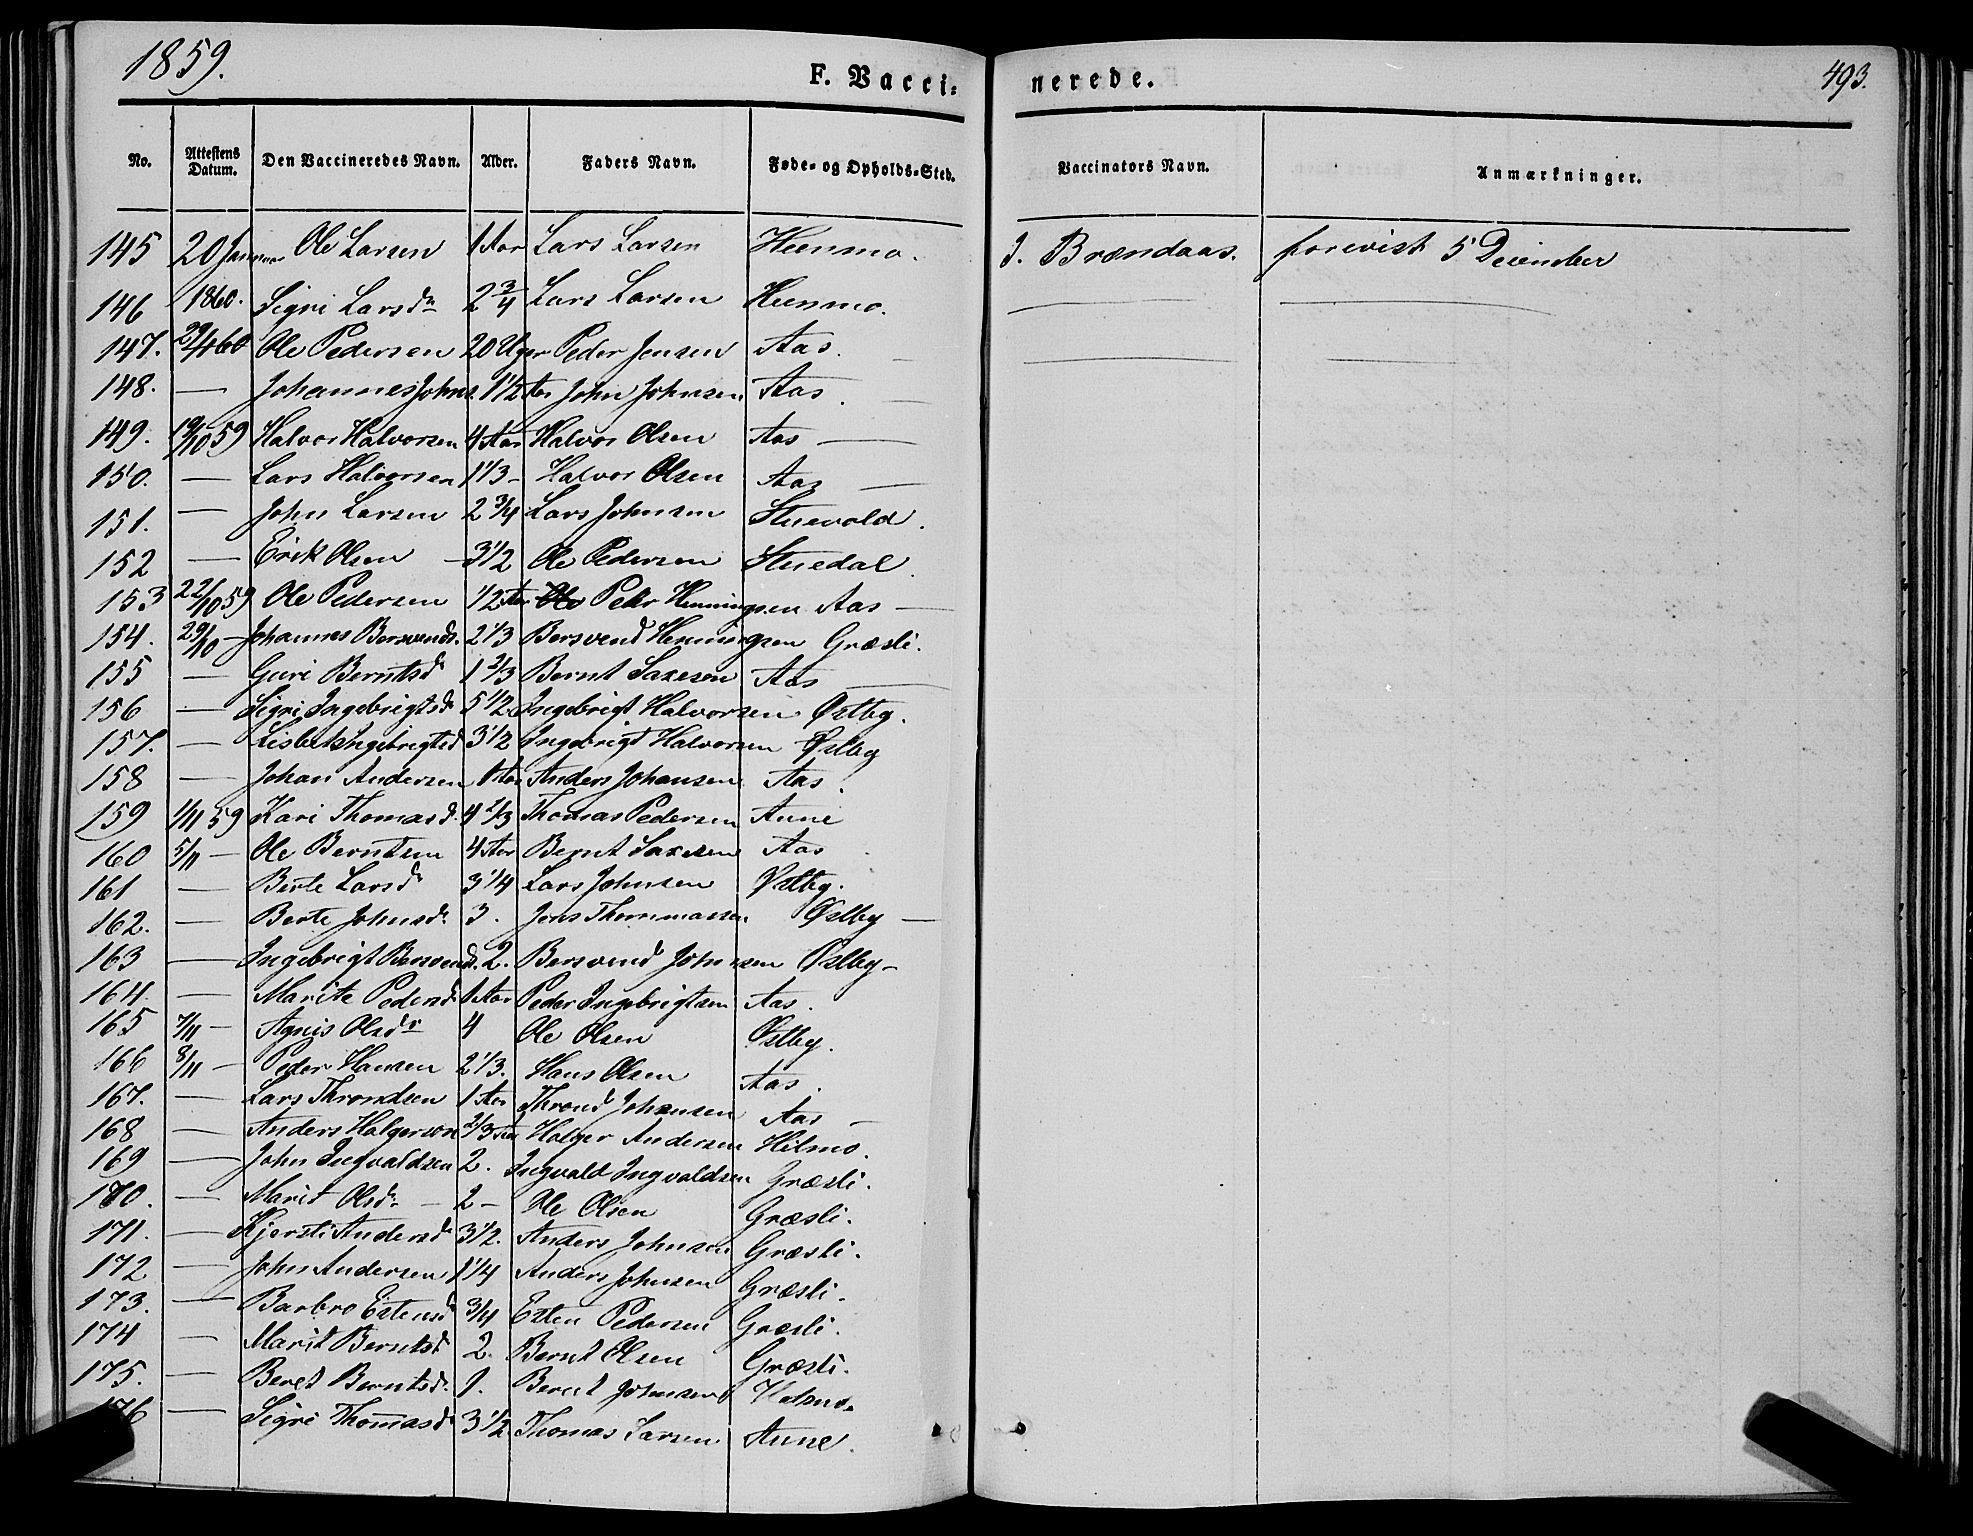 1859.
F. Vacci=
nerede.
493.
No. Attestens Datum. Den Vaccineredes Navn. Alder. Faders Navn. Føde= og Opholds=Sted. Vaccinators Navn. Anmærkninger.
145 20 Januar Ole Larsen 1 Aar Lars Larsen Heenmo. J. Brændaas. forevist 5 December
146 1860. Sigri Larsdr 2 3/4 Lars Larsen Heenmo.
147. 29/1 60 Ole Pedersen 20 Uger Peder Jensen Aas.
148. — Johannes Johns. 1 1/2 Aar John Johnsen Aas.
149. 19/10 59 Halvor Halvorsen 4 Aar Halvor Olsen Aas —
150. — Lars Halvorsen 1 1/3 - Halvor Olsen Aas —
151. — John Larsen 2 3/4 Lars Johnsen Stuevold.
152 — Erik Olsen - 3 1/2 Ole Pedersen Stuedal.
153 22/10 59 Ole Pedersen 1/2 Aar Ole Peder Henningsen Aas —
154. 29/10 - Johannes Bersvends. 2 1/3 Bersvend Henningsen Græsli.
155 — Guri Berntsd 1 2/3 Bernt Saxesen Aas —
156 — Sigri Ingebrigtsd 5 1/2 Ingebrigt Halvorsen Østby.
157. — Lisbet Ingebrigtsd 3 1/2 Ingebrigt Halvorsen Østby
158 — Johan Andersen 1 Aar Anders Johansen Aas.
159 1/11 59 Kari Thomasd. 4 2/3 Thomas Pedersen Aune
160 5/11 — Ole Berntsen 4 Aar Bernt Saxesen Aas
161 — Berte Larsdr 3 1/4 Lars Johnsen Østby.
162. — Berte Johnsd. 3. Jons Thommassen Østby —
163 — Ingebrigt Bersvends. 2. Bersvend Johnsen Østby -
164. — Marite Pedersd 1 Aar Peder Ingebrigtsen Aas.
165 7/11 - Agnis Olsdr 4 Ole Olsen Østby.
166 8/11 - Peder Hansen 2 1/3. Hans Olsen Aas.
167. — Lars Throndsen 1 Aar Thrond Johansen Aas —
168 — Anders Holgersen 2/3 Aar Holger Andersen Hilmo.
169 — John Ingvaldsen 2. Ingvald Ingvaldsen Græsli.
170. — Marit Olsd. - 2 - Ole Olsen Græsli.
171. — Kjersti Andersd 3 1/2. Anders Johnsen Græsli.
172 — John Andersen 1 1/4 Anders Johnsen Græsli.
173. — Barbro Estensd 3/4 Esten Pedersen Græsli.
174 — Marit Berntsd 2. Bernt Olsen Græsli.
175. — Beret Berntsd. 1. Bernt Johnsen
176 — Sigri Thomasd 3 1/2 Thomas Larsen Aune.